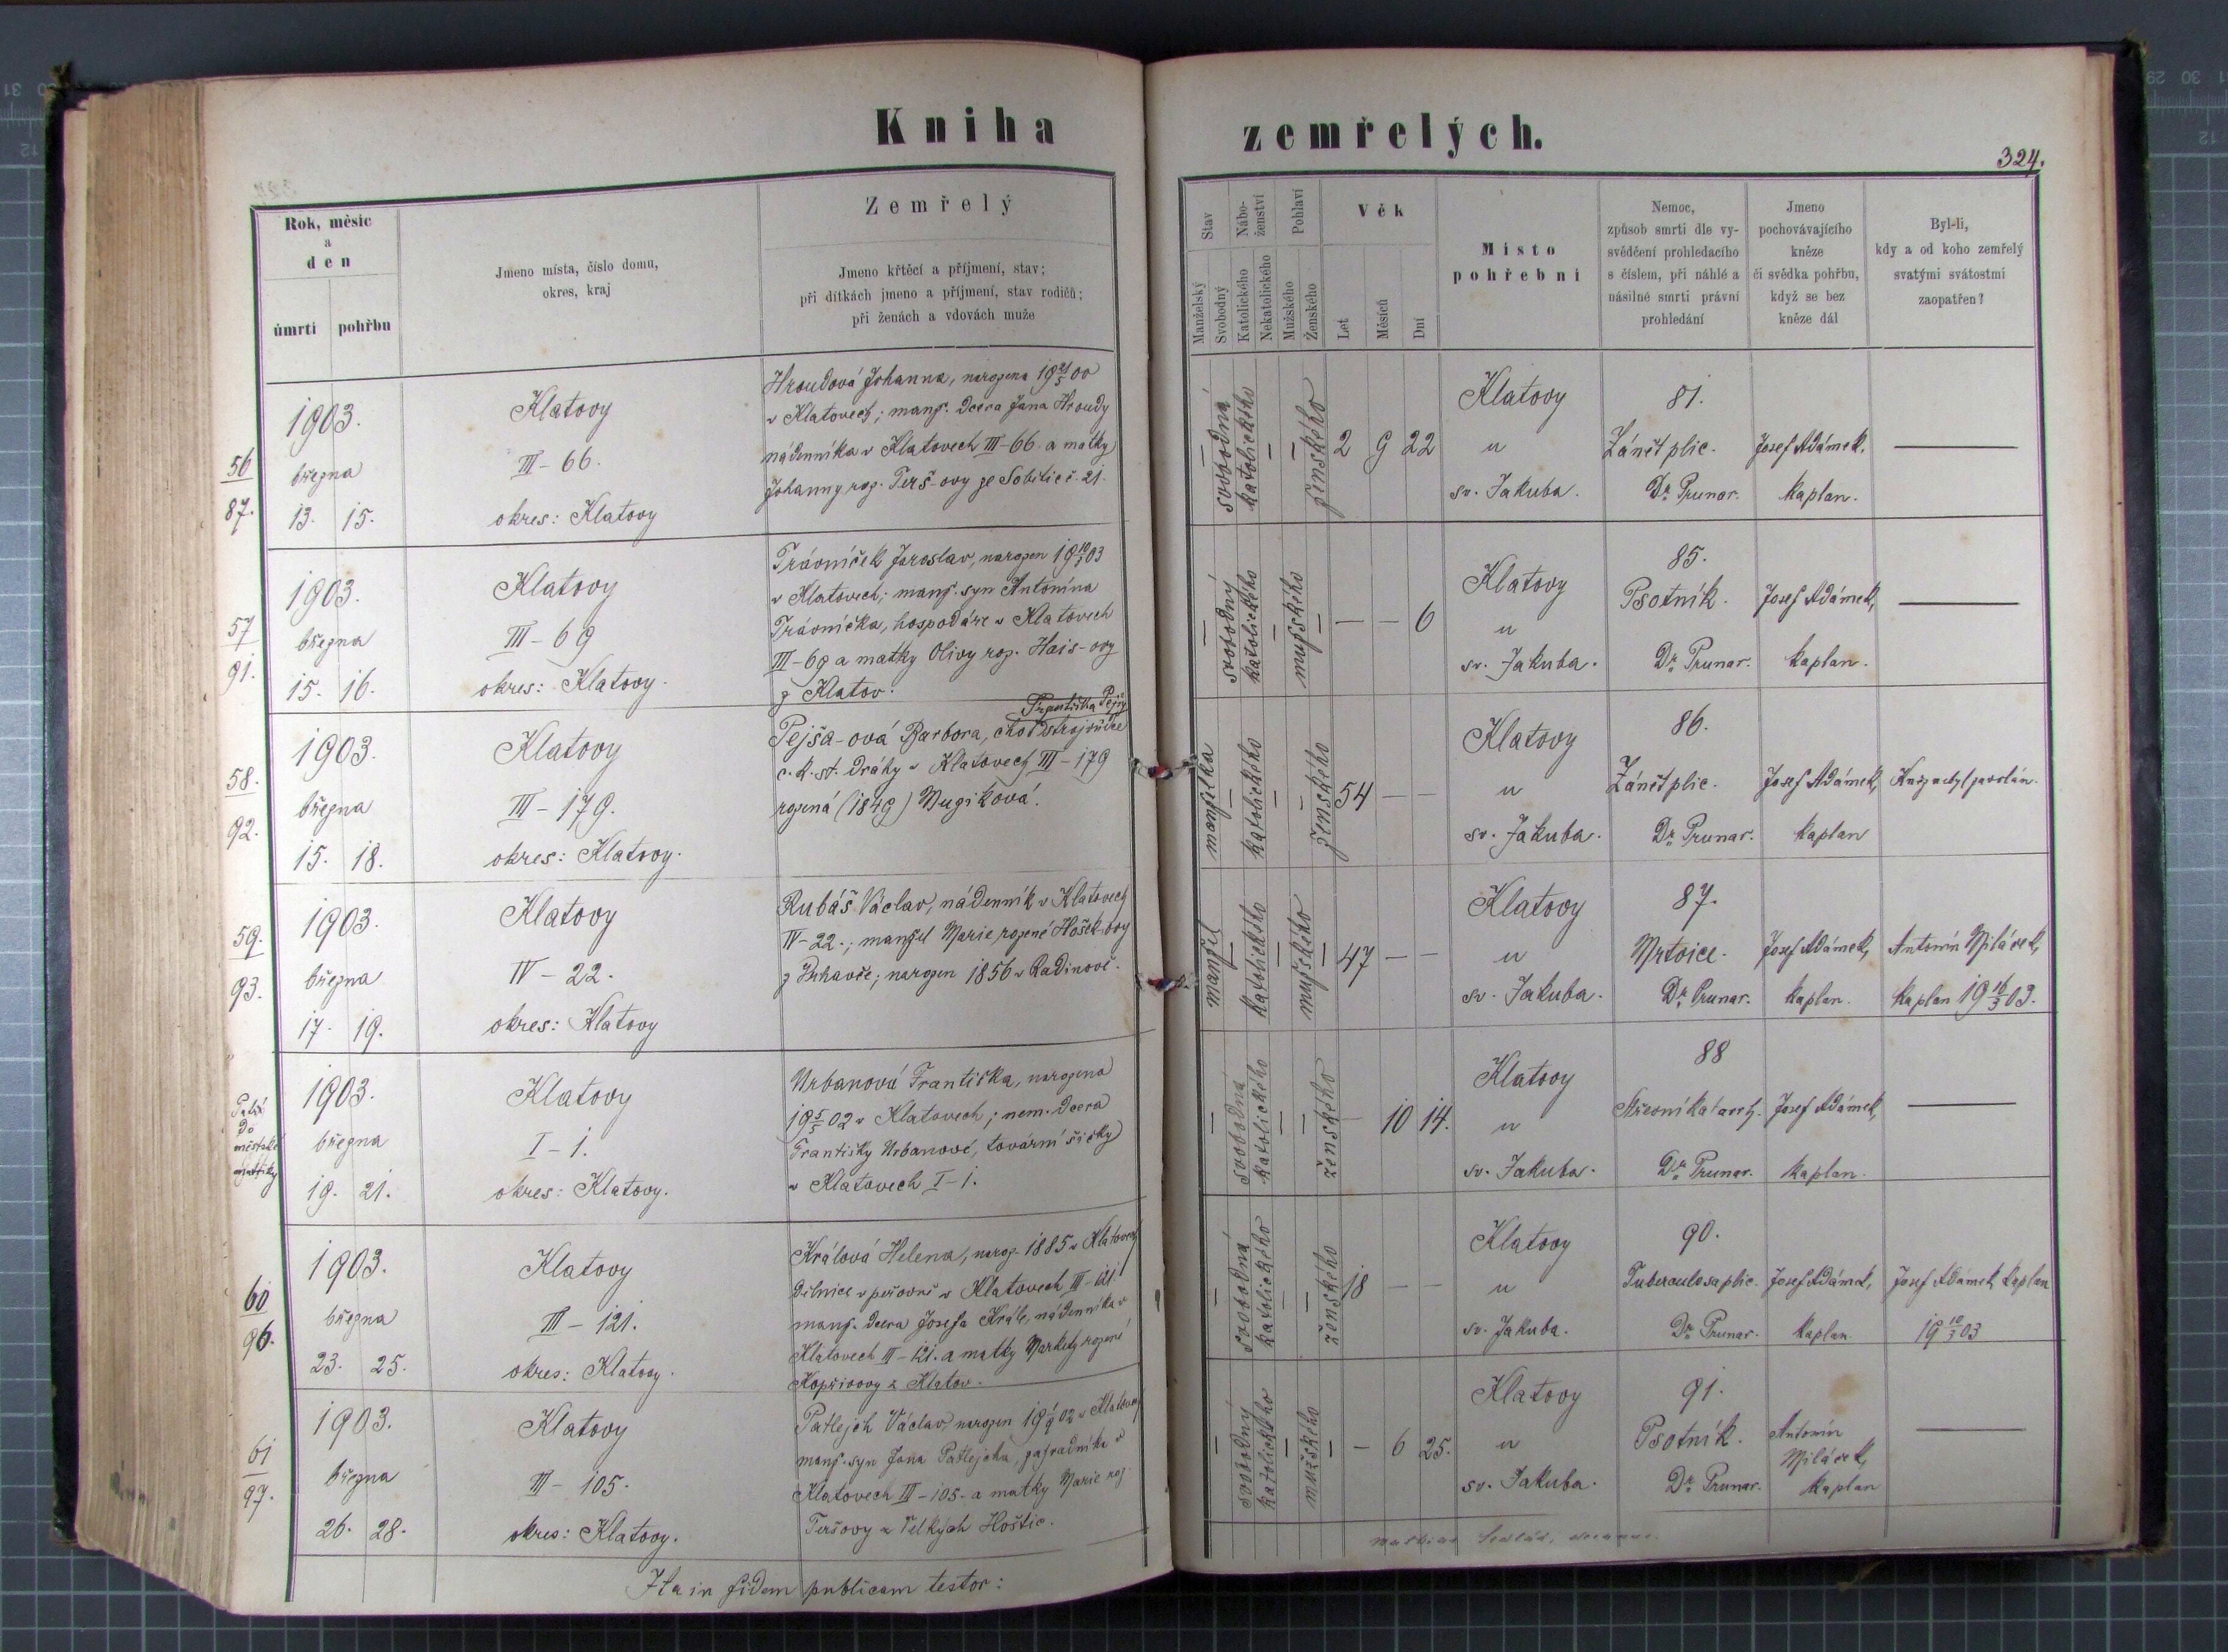 Kniha zemřelých.
324.
Rok, měsíc
a
den
úmrtí
pohřbu
Jmeno místa, číslo domu,
okres, kraj
Zemřelý
Jmeno křtěcí a příjmení, stav;
při dítkách jmeno a příjmení, stav rodičů;
při ženách a vdovách muže
Stav
Manželský
Svobodný
Nábo-
ženství
Katolického
Nekatolického
Pohlaví
Mužského
Ženského
Věk
Let
Měsíců
Dní
Místo
pohřební
Nemoc,
způsob smrti dle vy-
svědčení prohledacího
s číslem, při náhlé a
násilné smrti právní
prohledání
Jmeno
pochovávajícího
kněze
či svědka pohřbu,
když se bez
kněze dál
Byl-li,
kdy a od koho zemřelý
svatými svátostmi
zaopatřen?
56
87.
1903.
března
13. 15.
Klatovy
III – 66.
okres: Klatovy
Hroudová Johanna, narozena 19 21/5 00
v Klatovech; manž. dcera Jana Hroudy
nádenníka v Klatovech III–66 a matky
Johanny roz. Terš-ovy ze Sobětic č. 21.
– svobodná
katolického –
– ženského
2 9 22
Klatovy
u
sv. Jakuba.
81.
Zánět plic.
Dr. Prunar.
Josef Adámek,
kaplan.
57
91.
1903.
března
15. 16.
Klatovy
III – 69
okres: Klatovy.
Trávníček Jaroslav, narozen 19 10/3 03
v Klatovech; manž. syn Antonína
Trávníčka, hospodáře v Klatovech
III–69 a matky Olivy roz. Hais-ovy
z Klatov.
– svobodný
katolického –
mužského –
– – 6
Klatovy
u
sv. Jakuba.
85.
Psotník.
Dr. Prunar.
Josef Adámek,
kaplan.
58.
92.
1903.
března
15. 18.
Klatovy
III – 179.
okres: Klatovy.
Františka Pejši
Pejša-ová Barbora, choť strojvůdce
c. k. st. dráhy v Klatovech III–179
rozená (1849)
manželka –
katolického –
– ženského
54 – –
Klatovy
u
sv. Jakuba.
86.
Zánět plic.
Dr. Prunar.
Josef Adámek,
kaplan
Kněz nebyl zavolán.
59.
93.
1903.
března
17. 19.
Klatovy
IV – 22.
okres: Klatovy
Rubáš Václav, nádenník v Klatovech
IV–22.; manžel Marie rozené Hošek-ovy
z Bkavče; narozen 1856 v Radinově.
manžel –
katolického –
mužského –
47 – –
Klatovy
u
sv. Jakuba.
87.
Mrtvice.
Dr. Prunar.
Josef Adámek,
kaplan.
Antonín Miláček,
kaplan 19 16/3 03.
Patří
do
městské
matriky
1903.
března
19. 21.
Klatovy
I – 1.
okres: Klatovy.
Urbanová Františka, narozena
19 5/5 02 v Klatovech; nem. dcera
Františky Urbanové, tovární šičky
v Klatovech I–1.
– svobodná
katolického –
– ženského
– 10 14.
Klatovy
u
sv. Jakuba.
88
Střevní katarrh.
Dr. Prunar.
Josef Adámek,
kaplan.
60
96.
1903.
března
23. 25.
Klatovy
III – 121.
okres: Klatovy.
Králová Helena, naroz. 1885 v Klatovech
dělnice v peřovně v Klatovech III–121
manž. dcera Josefa Krále, nádenníka v
Klatovech III–121. a matky Markety rozené
Kopřivovy z Klatov.
– svobodná
katolického –
– ženského
18 – –
Klatovy
u
sv. Jakuba.
90.
Tuberculosa plic.
Dr. Prunar.
Josef Adámek,
kaplan.
Josef Adámek kaplan
19 10/3 03
61
97.
1903.
března
26. 28.
Klatovy
III – 105.
okres: Klatovy.
Patlejch Václav, narozen 19 1/9 02 v Klatovech
manž. syn Jana Patlejcha, zahradníka v
Klatovech III–105. a matky Marie roz.
Teršovy z Velkých Hoštic.
– svobodný
katolického –
mužského –
– 6 25.
Klatovy
u
sv. Jakuba.
91.
Psotník.
Dr. Prunar.
Antonín
Miláček,
kaplan
Ita in fidem publicam testor: